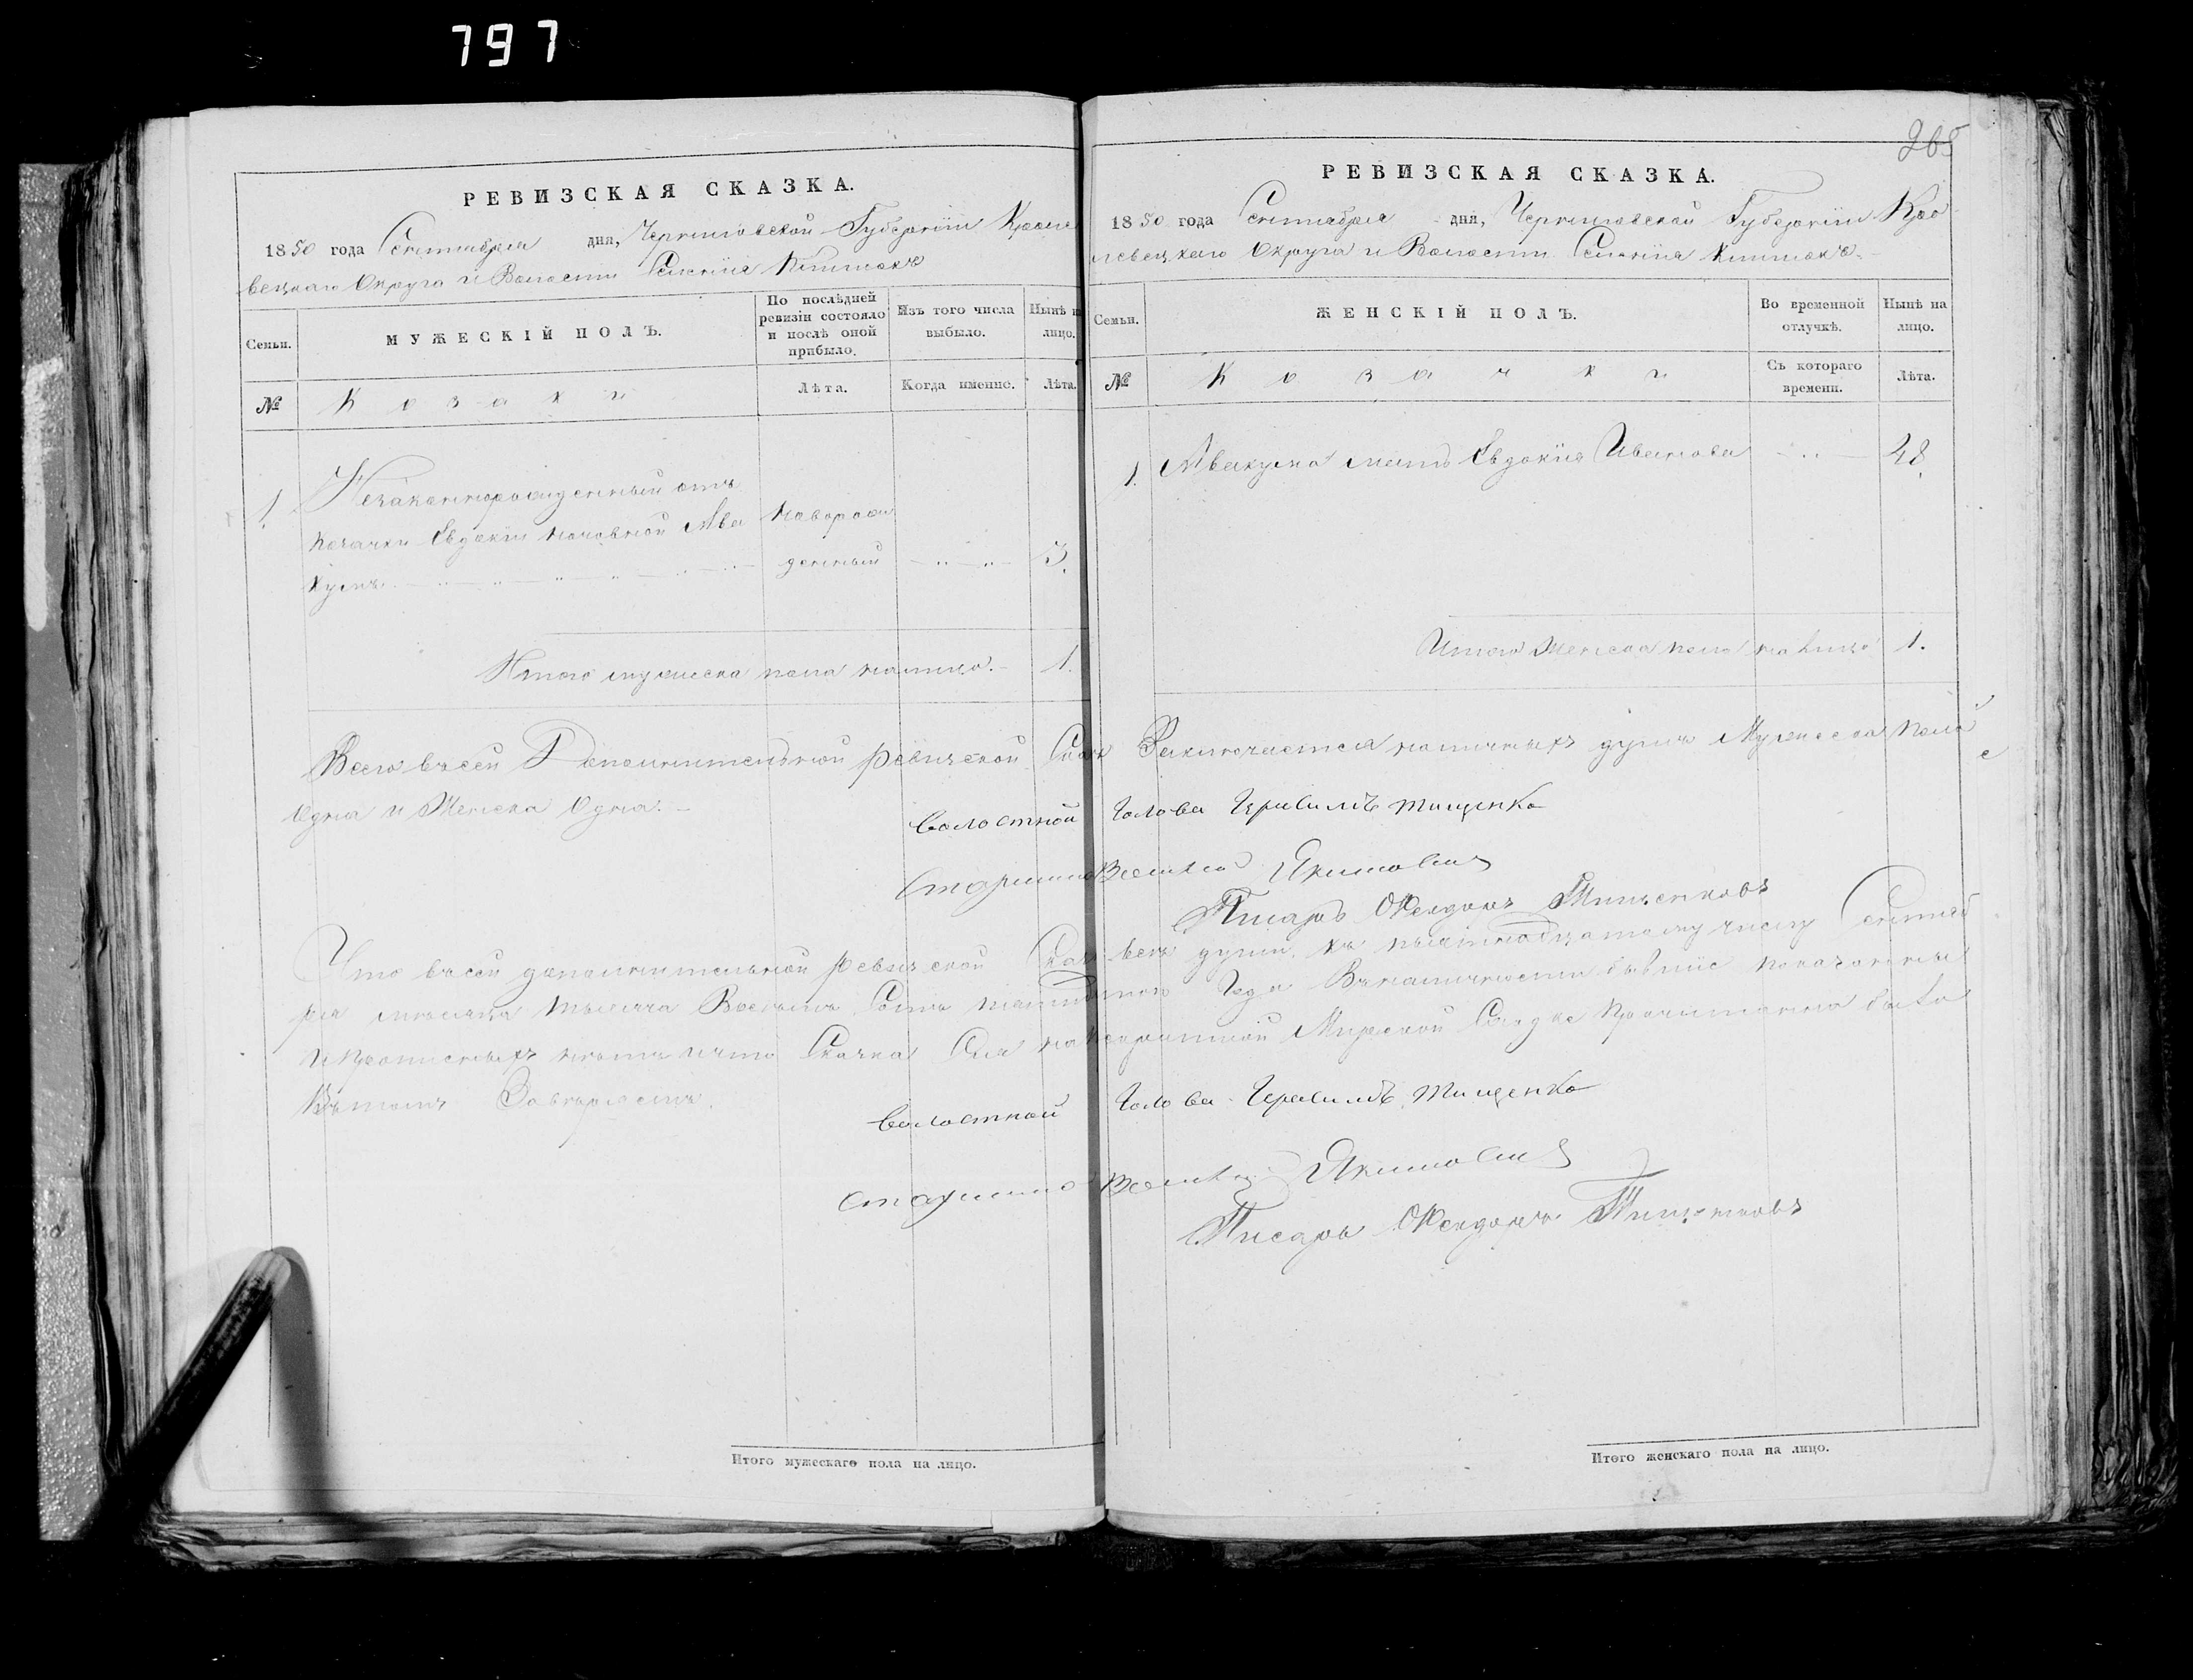 797
РЕВИЗСКАЯ СКАЗКА.
1850 года Сентября дня, Черниговской Губерніи Кроле
вецкаго Округа и Волости Селенія
Семьи.
МУЖЕСКІЙ ПОЛЪ.
По послѣдней ревизіи состояло и послѣ оной прибыло.
Изъ того числа выбыло.
Нынѣ на лицо.
№
Козаки
Лѣта.
Когда именно.
Лѣта.
1. Незаконнорожденный отъ
козачки Евдокіи Ава новорож
кумъ денный 3.
Итого мужеска пола налицо. 1.
265
РЕВИЗСКАЯ СКАЗКА.
1850 года Сентября дня, Черниговской Губерніи Кро
левецкаго Округа и Волости Селенія
Семьи.
ЖЕНСКІЙ ПОЛЪ.
Во временной отлучкѣ.
Нынѣ на лицо.
№
Козачки
Съ котораго времени.
Лѣта.
1. Авакума мать Евдокія Иванова 28.
Итого Женска пола налицо 1.
Всего въ сей Дополнительной ревизской Сказке Заключается наличныхъ душъ Мужеска пола
Одна и Женска Одна.
Волостной Голова Герасимъ Тищенко
Старшина
Писарь Тищенковъ
Что въ сей дополнительной ревизской Сказке всѣ души, къ числу Сентяб
ря мѣсяца тысяча Восемь Сотъ пятидесятого Года Въ наличности бывшіе показаны
и прописныхъ нѣтъ и что Сказка Сія на Мирской Сходке Прочитанна была
Въ томъ
Волостной Голова Герасимъ Тищенко
Старшина
Писарь Тищенковъ
Итого мужескаго пола на лицо.
Итого женскаго пола на лицо.